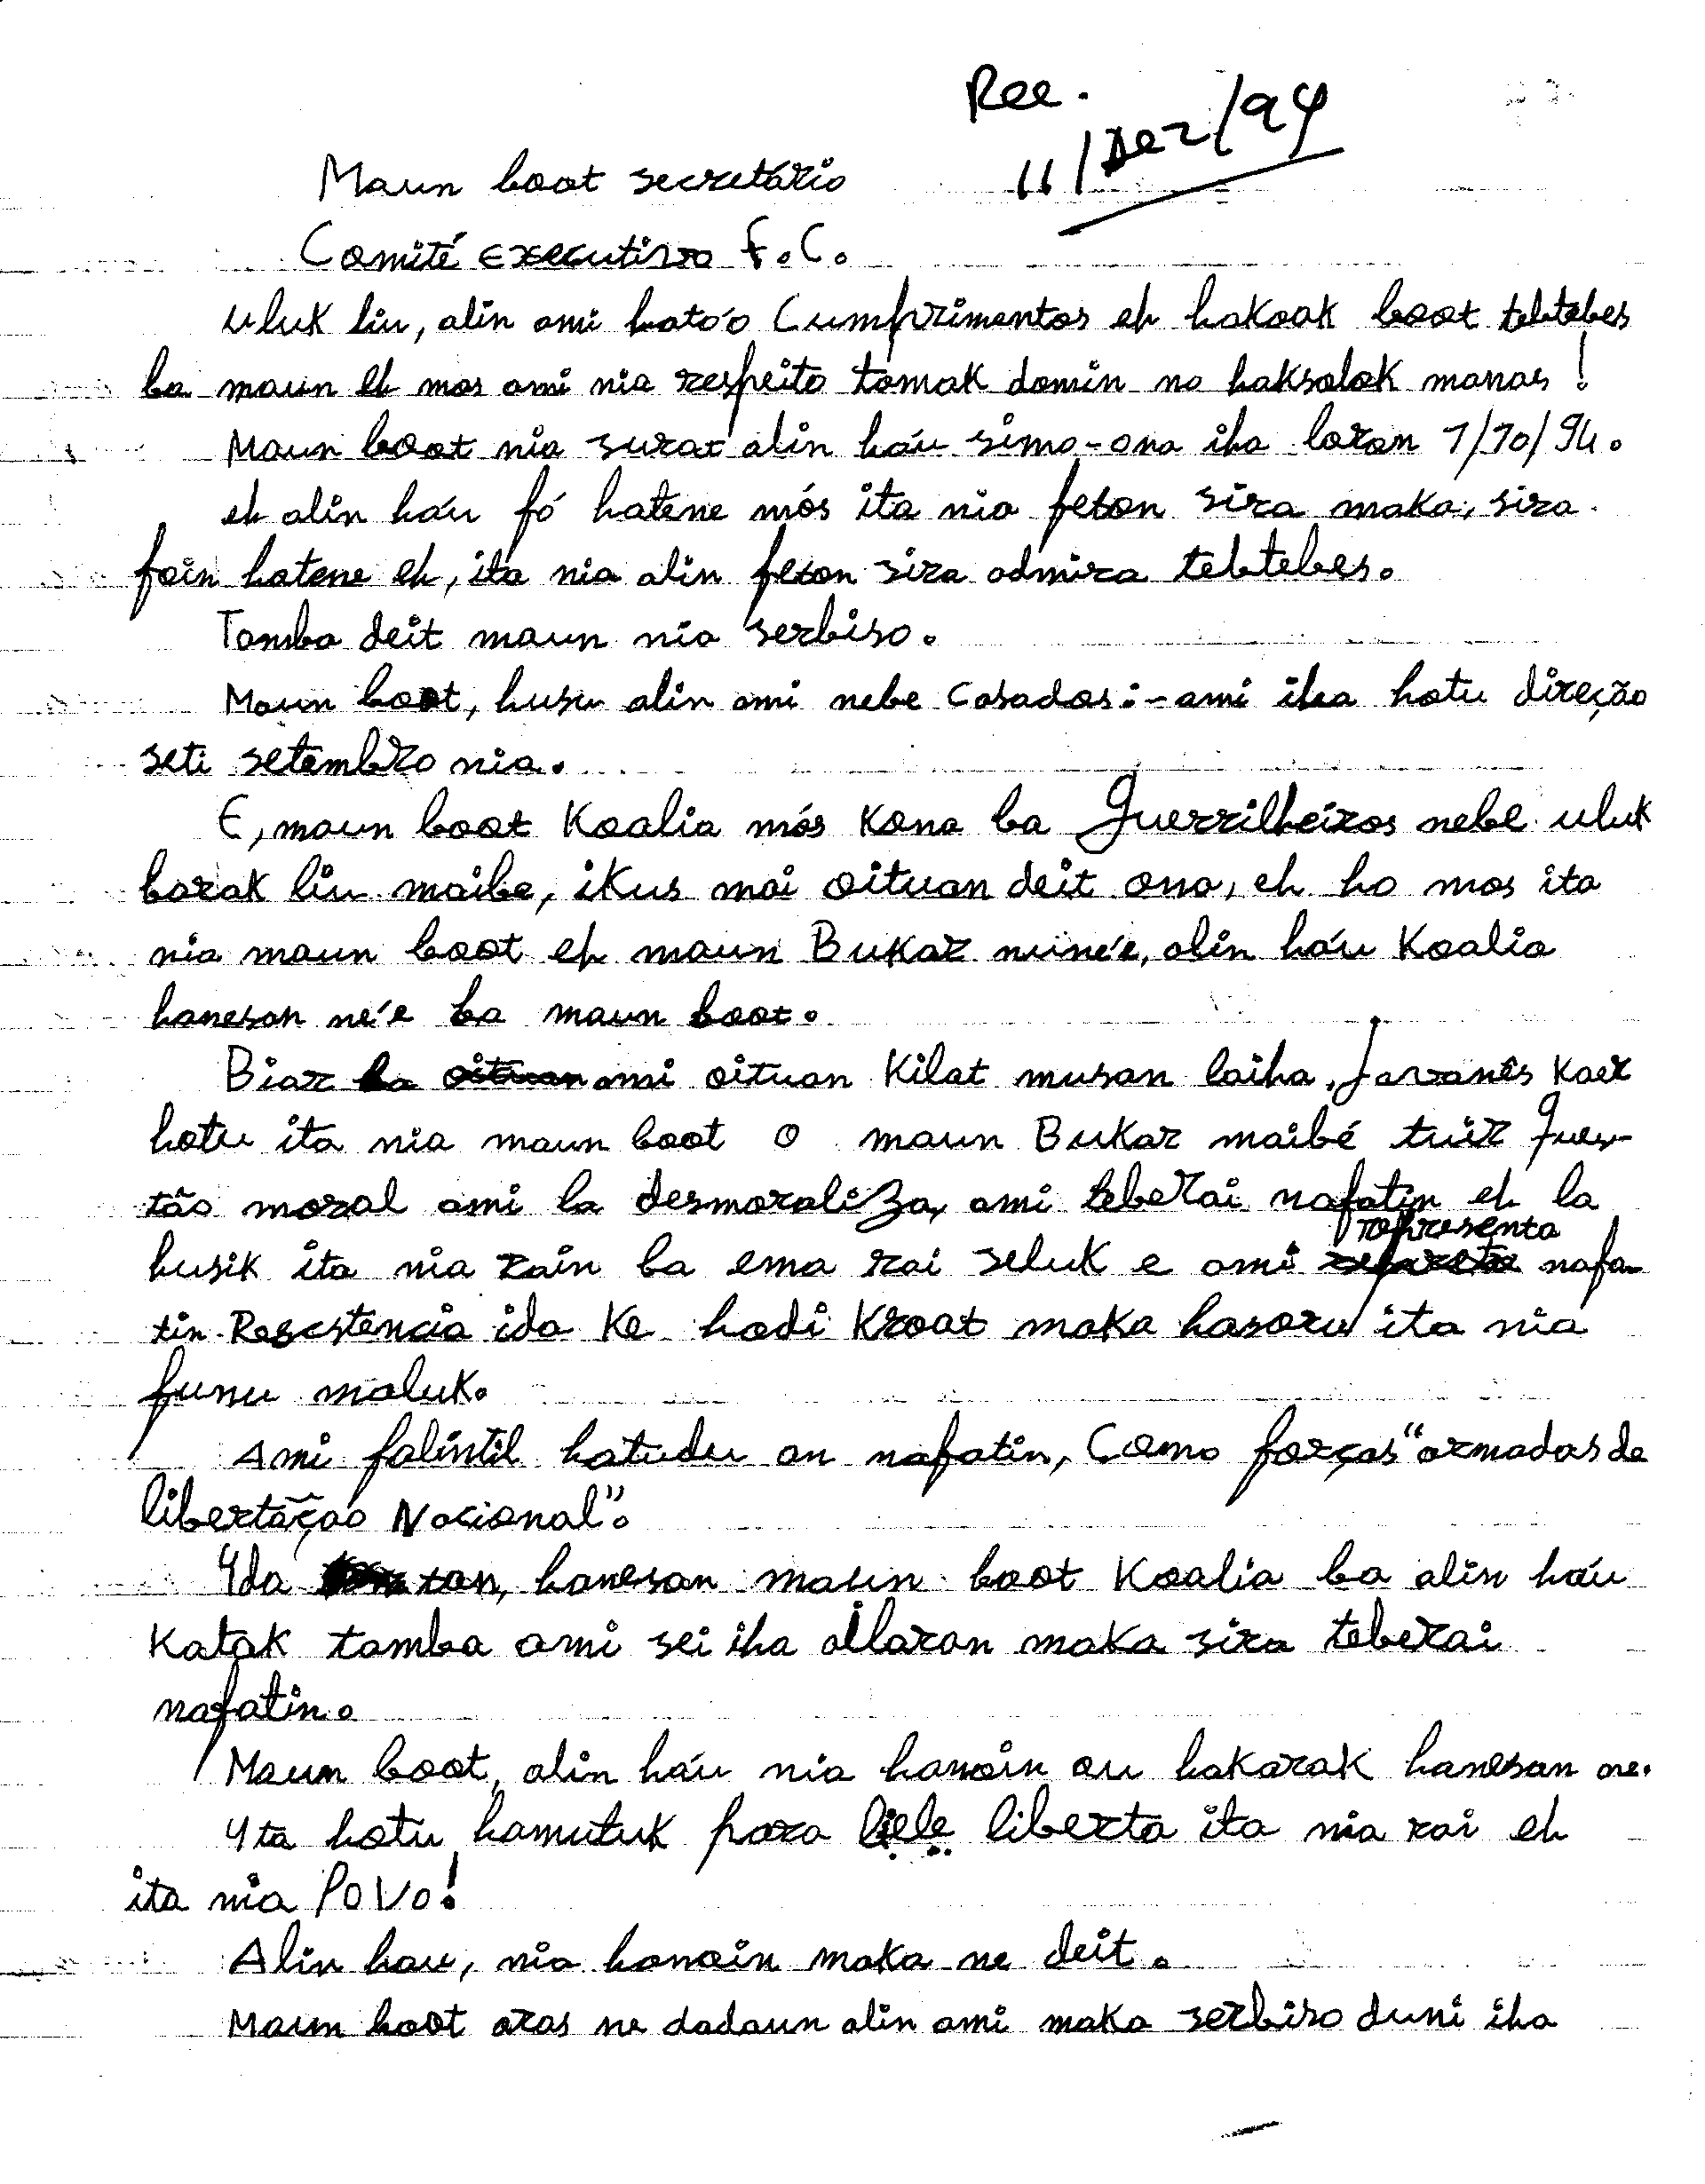 Rec.
11/Dez/94
Maun boot secretário
Comité Executivo F.C.
Uluk liu, alin ami hato'o Cumprimentos eh hakoak boot tebtebes
ba maun eh mos ami nia respeito tomak domin no haksolok manas!
Maun boot nia surat alin háu simo-ona iha loron 7/10/94.
eh alin háu fó hatene mós ita nia feton sira maka, sira
foin hatene eh, ita nia alin feton sira admira tebtebes.
Tomba deit maun nia serbiso.
Maun boot, husu alin ami nebe Casados:-ami iha hotu direção
seti setembro nia.
E, maun boot Koalia mós Kona ba Guerrilheiros nebe uluk
barak liu maibe, ikus mai oituan deit ona, eh ho mos ita
nia maun boot eh maun Bukar nuine'e, alin háu Koalia
haneson ne'e ba maun boot.
Biar ba oituan ami oituan Kilat musan laiha, Javanês Kaer
hotu ita nia maun boot o maun Bukar maibé tuir Ques-
tão moral ami la desmoraliza, ami teberai nafatin eh la
husik ita nia rain ba ema rai seluk e ami representa nafa-
tin Resestência ida Ke hodi Kroat maka hasoru ita nia
funu maluk.
Ami falintil hatudu an nafatin, Como forças "armadas de
libertação Nacional".
Yda tan, haneson maun boot Koalia ba alin háu
Katak tamba ami sei iha ailaran maka sira teberai
nafatin.
Maun boot, alin háu nia hanoin ou hakarak haneson ne.
Yta hotu hamutuk para bele liberta ita nia rai eh
ita nia Povo!
Alin hau, nia hanoin maka ne deit.
Maun boot oras ne dadaun alin ami maka serbiso duni iha